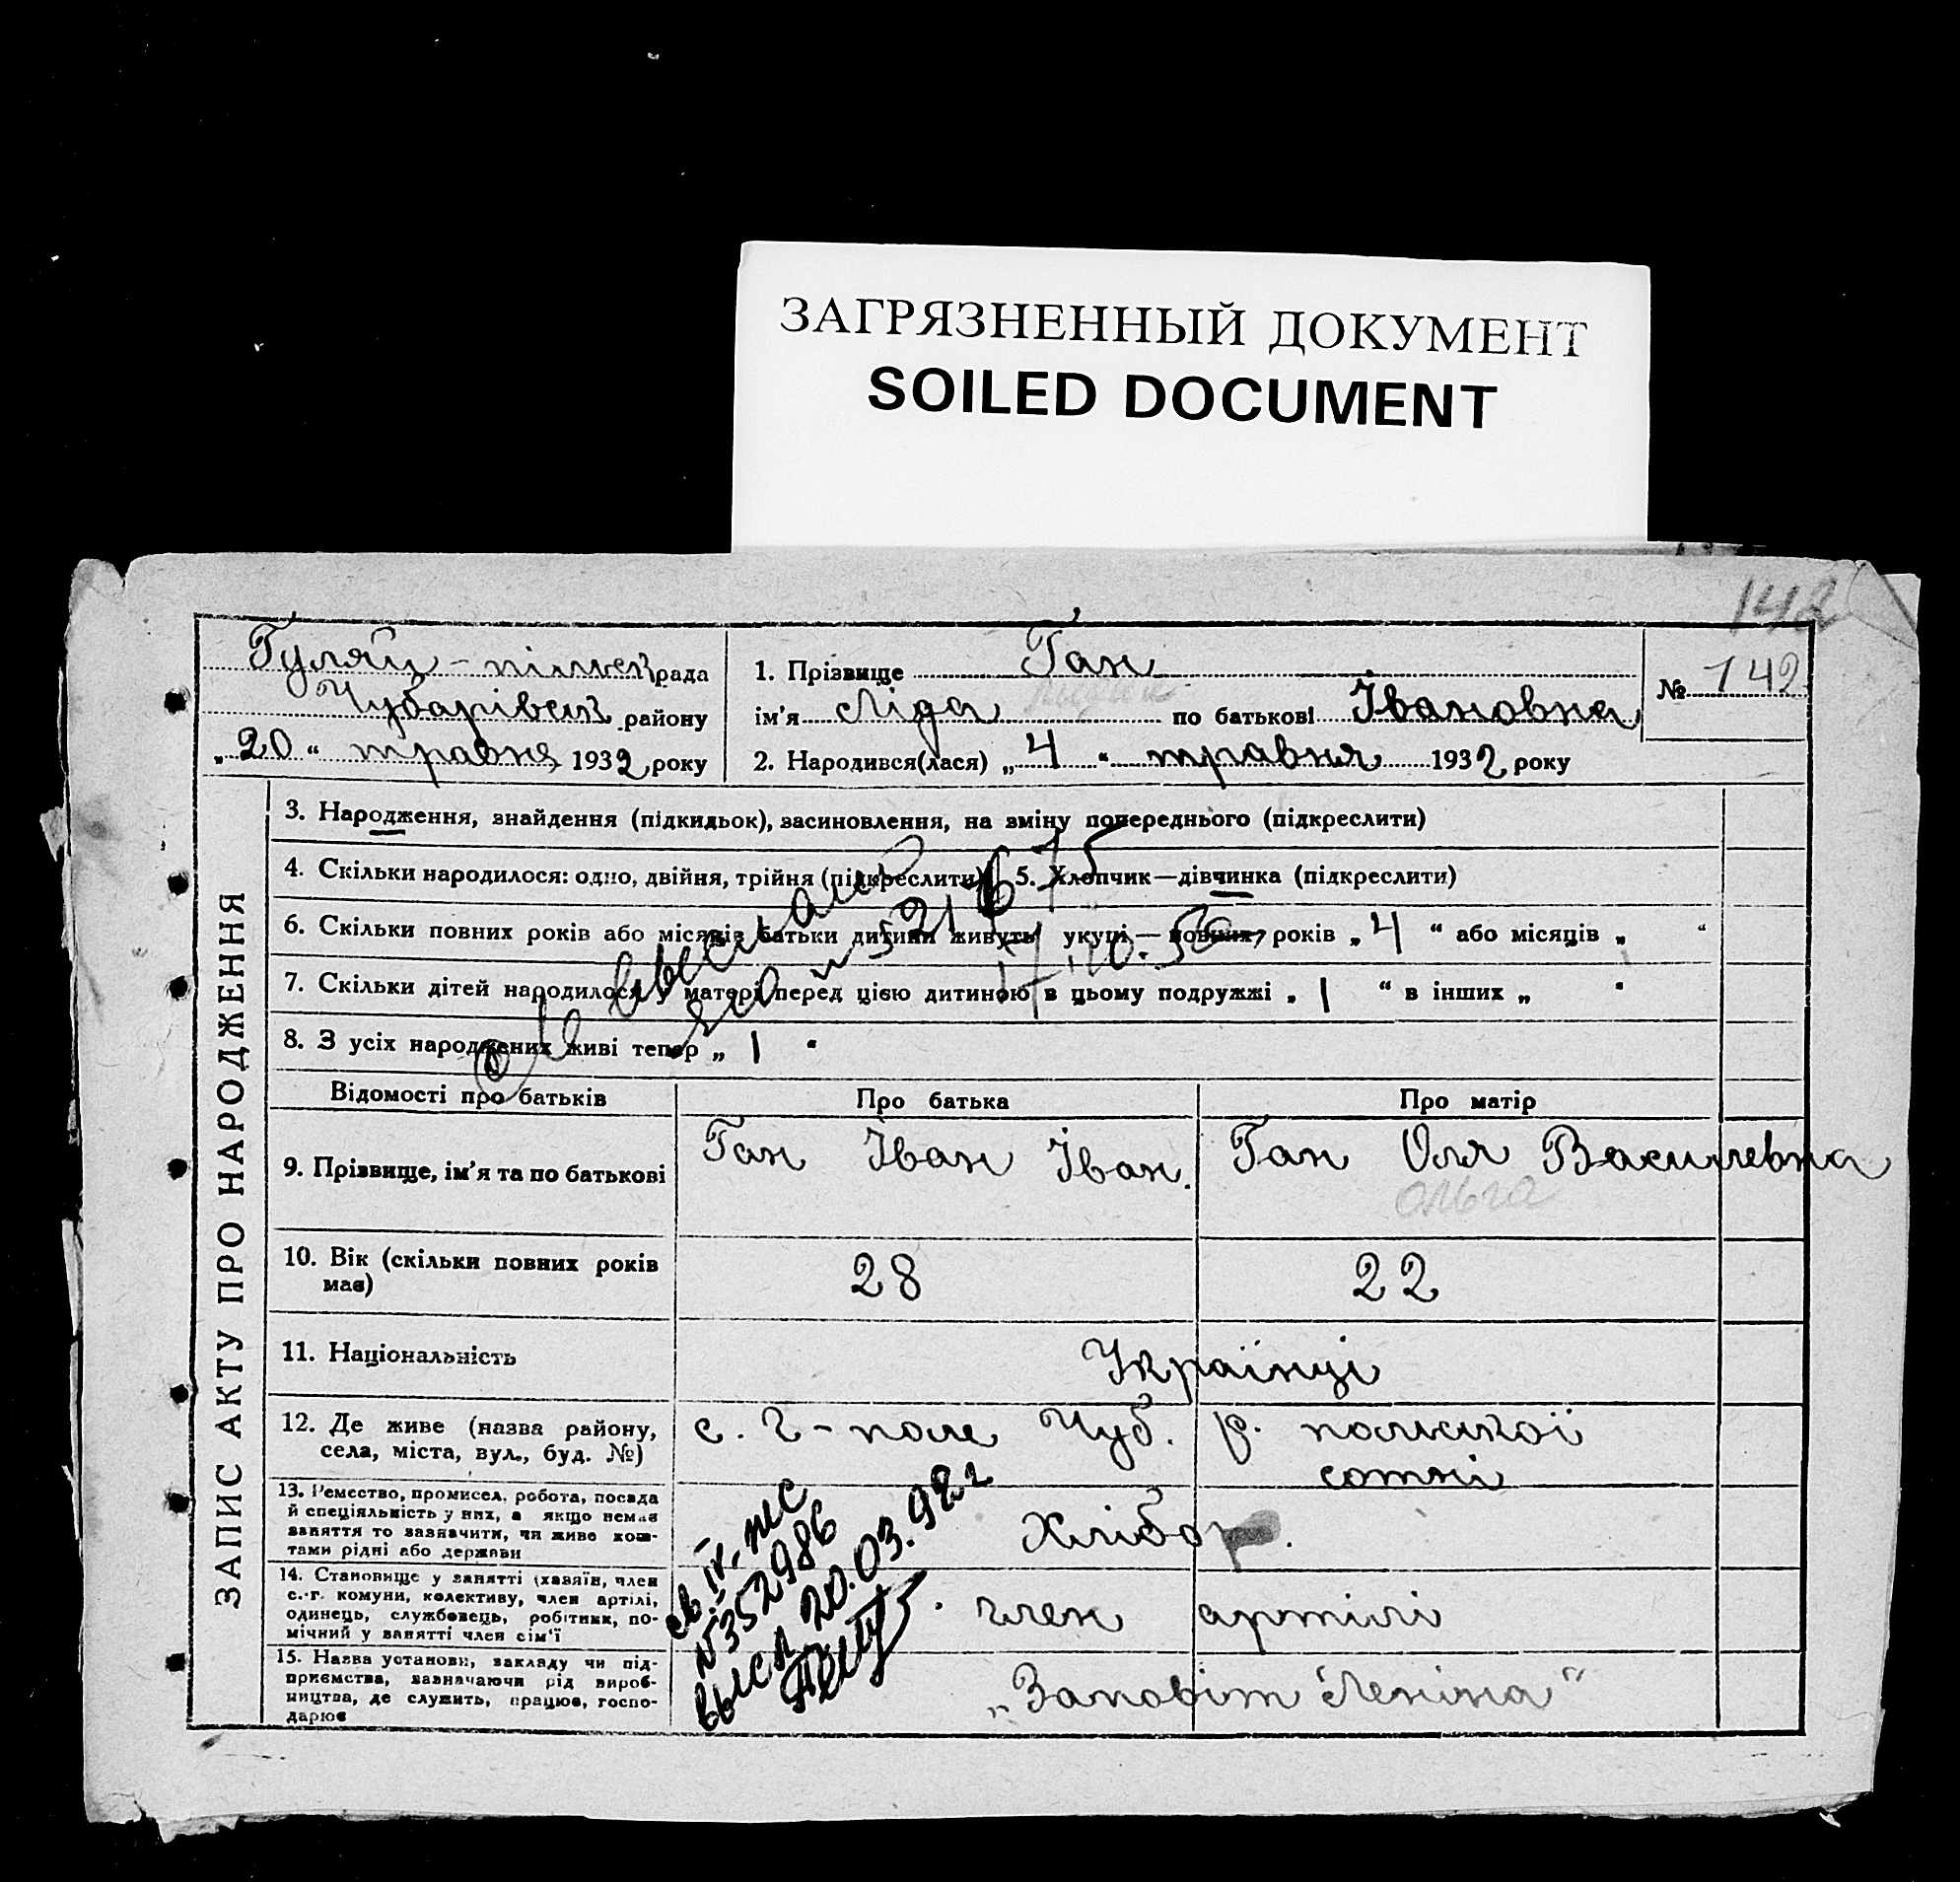 ЗАГРЯЗНЕННЫЙ ДОКУМЕНТ
SOILED DOCUMENT
142
Гуляй-пільск рада
Чубарівськ району
„20“ травня 1932 року
1. Прізвище Ган
ім’я Ліда по батькові Івановна
№ 142
2. Народився(лася) „4“ травня 1932 року
ЗАПИС АКТУ ПРО НАРОДЖЕННЯ
3. Народження, знайдення (підкидьок), засиновлення, на зміну попереднього (підкреслити)
4. Скільки народилося: одно, двійня, трійня (підкреслити) 5. Хлопчик—дівчинка (підкреслити)
6. Скільки повних років або місяців батьки дитини живуть укупі — повних років „4“ або місяців „ “
7. Скільки дітей народилося у матері перед цією дитиною в цьому подружжі „1“ в інших „ “
8. З усіх народжених живі тепер „1“
17.10.56
Відомості про батьків Про батька Про матір
9. Прізвище, ім’я та по батькові Ган Іван Іван. Ган Оля Василевна
Ольга
10. Вік (скільки повних років має) 28 22
11. Національність Українці
12. Де живе (назва району, с. Г-поле Чуб. р. польської
села, міста, вул., буд. №) сотні
13. Ремество, промисел, робота, посада
й спеціяльність у них, а якщо немає
заняття то зазначити, чи живе кош-
тами рідні або держави
Хлібор.
14. Становище у занятті (хазяїн, член
с.-г. комуни, колективу, член артілі,
одинець, службовець, робітник, по-
мічний у занятті член сім’ї
член артілі
15. Назва установи, закладу чи під-
приємства, зазначаючи рід вироб-
ництва, де служить, працює, госпо-
дарює
„Заповіт Леніна“
св. IV-ЖС
№352986
высл 20.03.98г